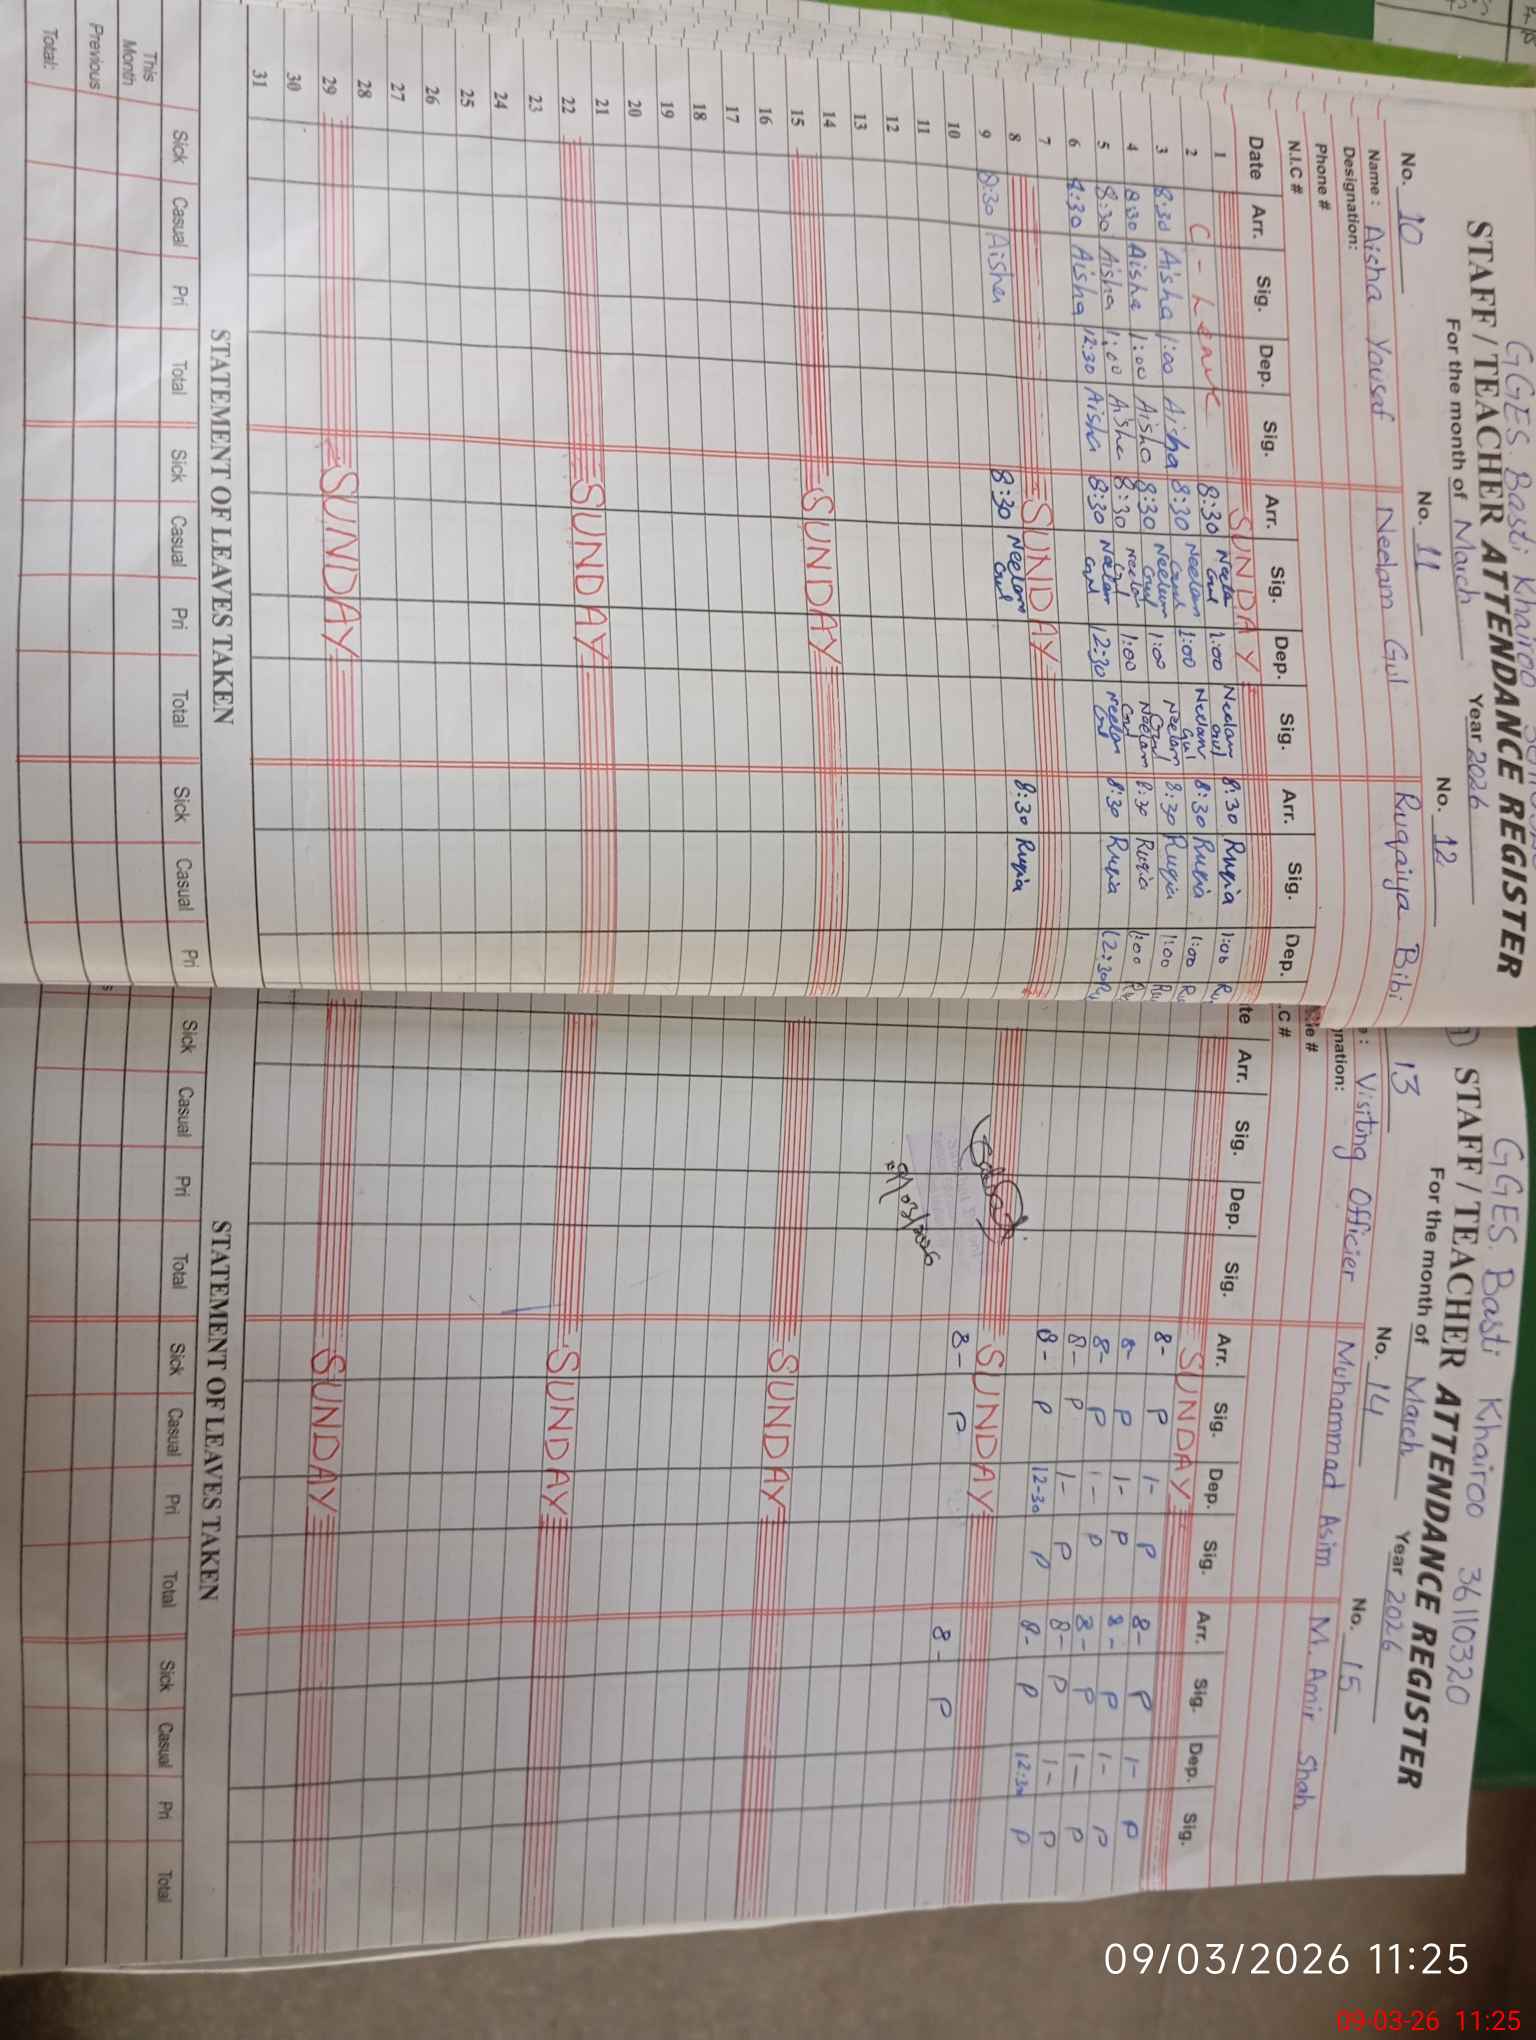 GGES. Basti Khairoo
STAFF / TEACHER ATTENDANCE REGISTER
For the month of March Year 2026
No. 10 No. 11 No. 12
Name : Aisha Yousaf Neelam Gul Ruqaiya Bibi
Designation:
Phone #
N.I.C #
Date Arr. Sig. Dep. Sig. Arr. Sig. Dep. Sig. Arr. Sig. Dep.
1 SUNDAY
2 C - Leave 8:30 Neelam Gul 1:00 Neelam Gul 8:30 Ruqia 1:00
3 8:30 Aisha 1:00 Aisha 8:30 Neelam Gul 1:00 Neelam Gul 8:30 Ruqia 1:00
4 8:30 Aisha 1:00 Aisha 8:30 Neelam Gul 1:00 Neelam Gul 8:30 Ruqia 1:00
5 8:30 Aisha 1:00 Aisha 8:30 Neelam Gul 1:00 Neelam Gul 8:30 Ruqia 1:00
6 8:30 Aisha 12:30 Aisha 8:30 Neelam Gul 12:30 Neelam Gul 8:30 Ruqia 12:30
7
8 SUNDAY
9 8:30 Aisha 8:30 Neelam Gul 8:30 Ruqia
10
11
12
13
14
15 SUNDAY
16
17
18
19
20
21
22 SUNDAY
23
24
25
26
27
28
29 SUNDAY
30
31
STATEMENT OF LEAVES TAKEN
Sick Casual Pri Total Sick Casual Pri Total Sick Casual Pri
This Month
Previous
Total:
GGES. Basti Khairoo 36110320
STAFF / TEACHER ATTENDANCE REGISTER
For the month of March Year 2026
13 No. 14 No. 15
: Visiting Officier Muhammad Asim M. Amir Shah
nation:
ne #
.C #
te Arr. Sig. Dep. Sig. Arr. Sig. Dep. Sig. Arr. Sig. Dep. Sig.
SUNDAY
8- P 1- P 8- P 1- P
8- P 1- P 8- P 1- P
8- P 1- P 8- P 1- P
8- P 1- P 8- P 1- P
8- P 12-30 P 8- P 12:30 P
SUNDAY
8- P 8- P
SUNDAY
SUNDAY
SUNDAY
STATEMENT OF LEAVES TAKEN
Sick Casual Pri Total Sick Casual Pri Total Sick Casual Pri Total
09/03/2026 11:25
09-03-26 11:25